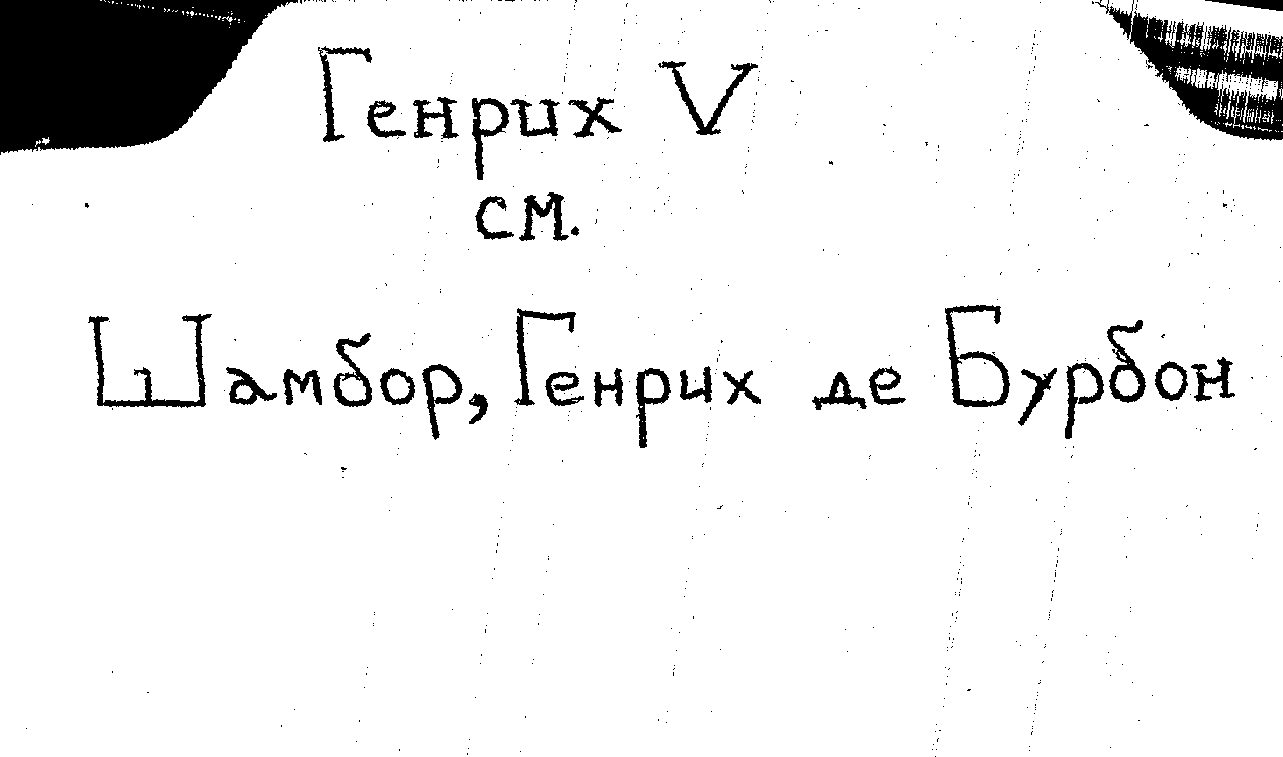 Генрих V
см.
Шамбор, Генрих де Бурбон